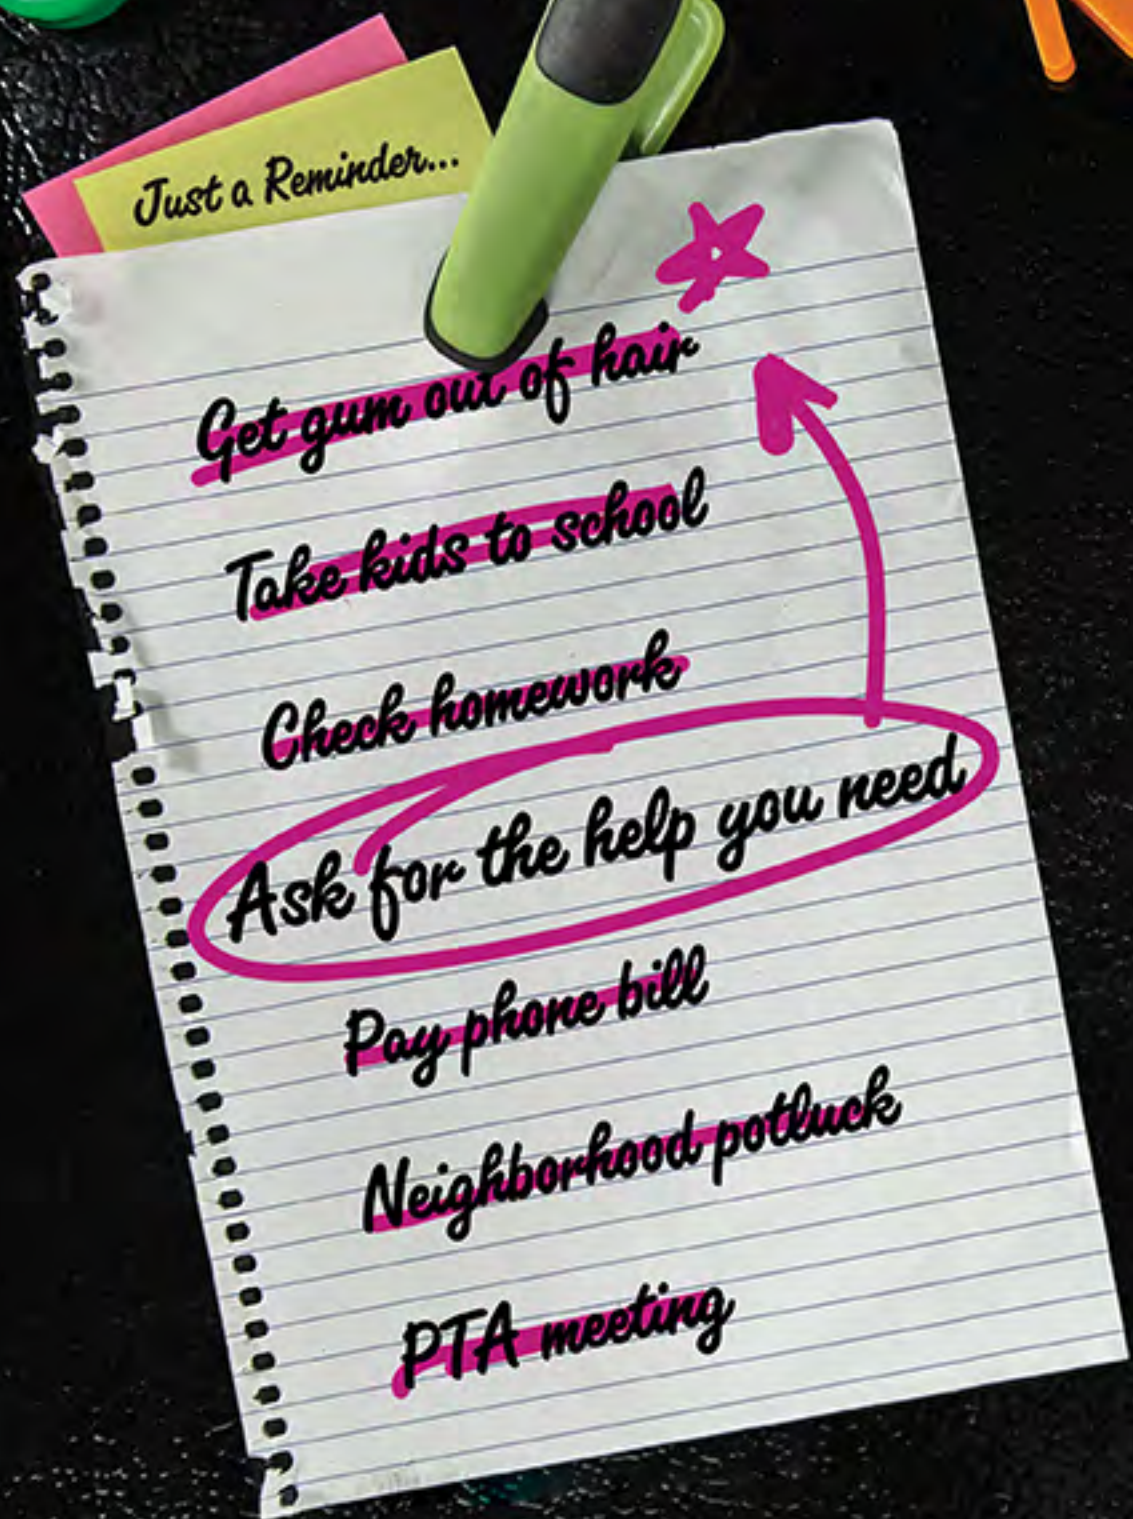 Just a Reminder...
Get gum out of hair
Take kids to school
Check homework
Ask for the help you need
Pay phone bill
Neighborhood potluck
PTA meeting